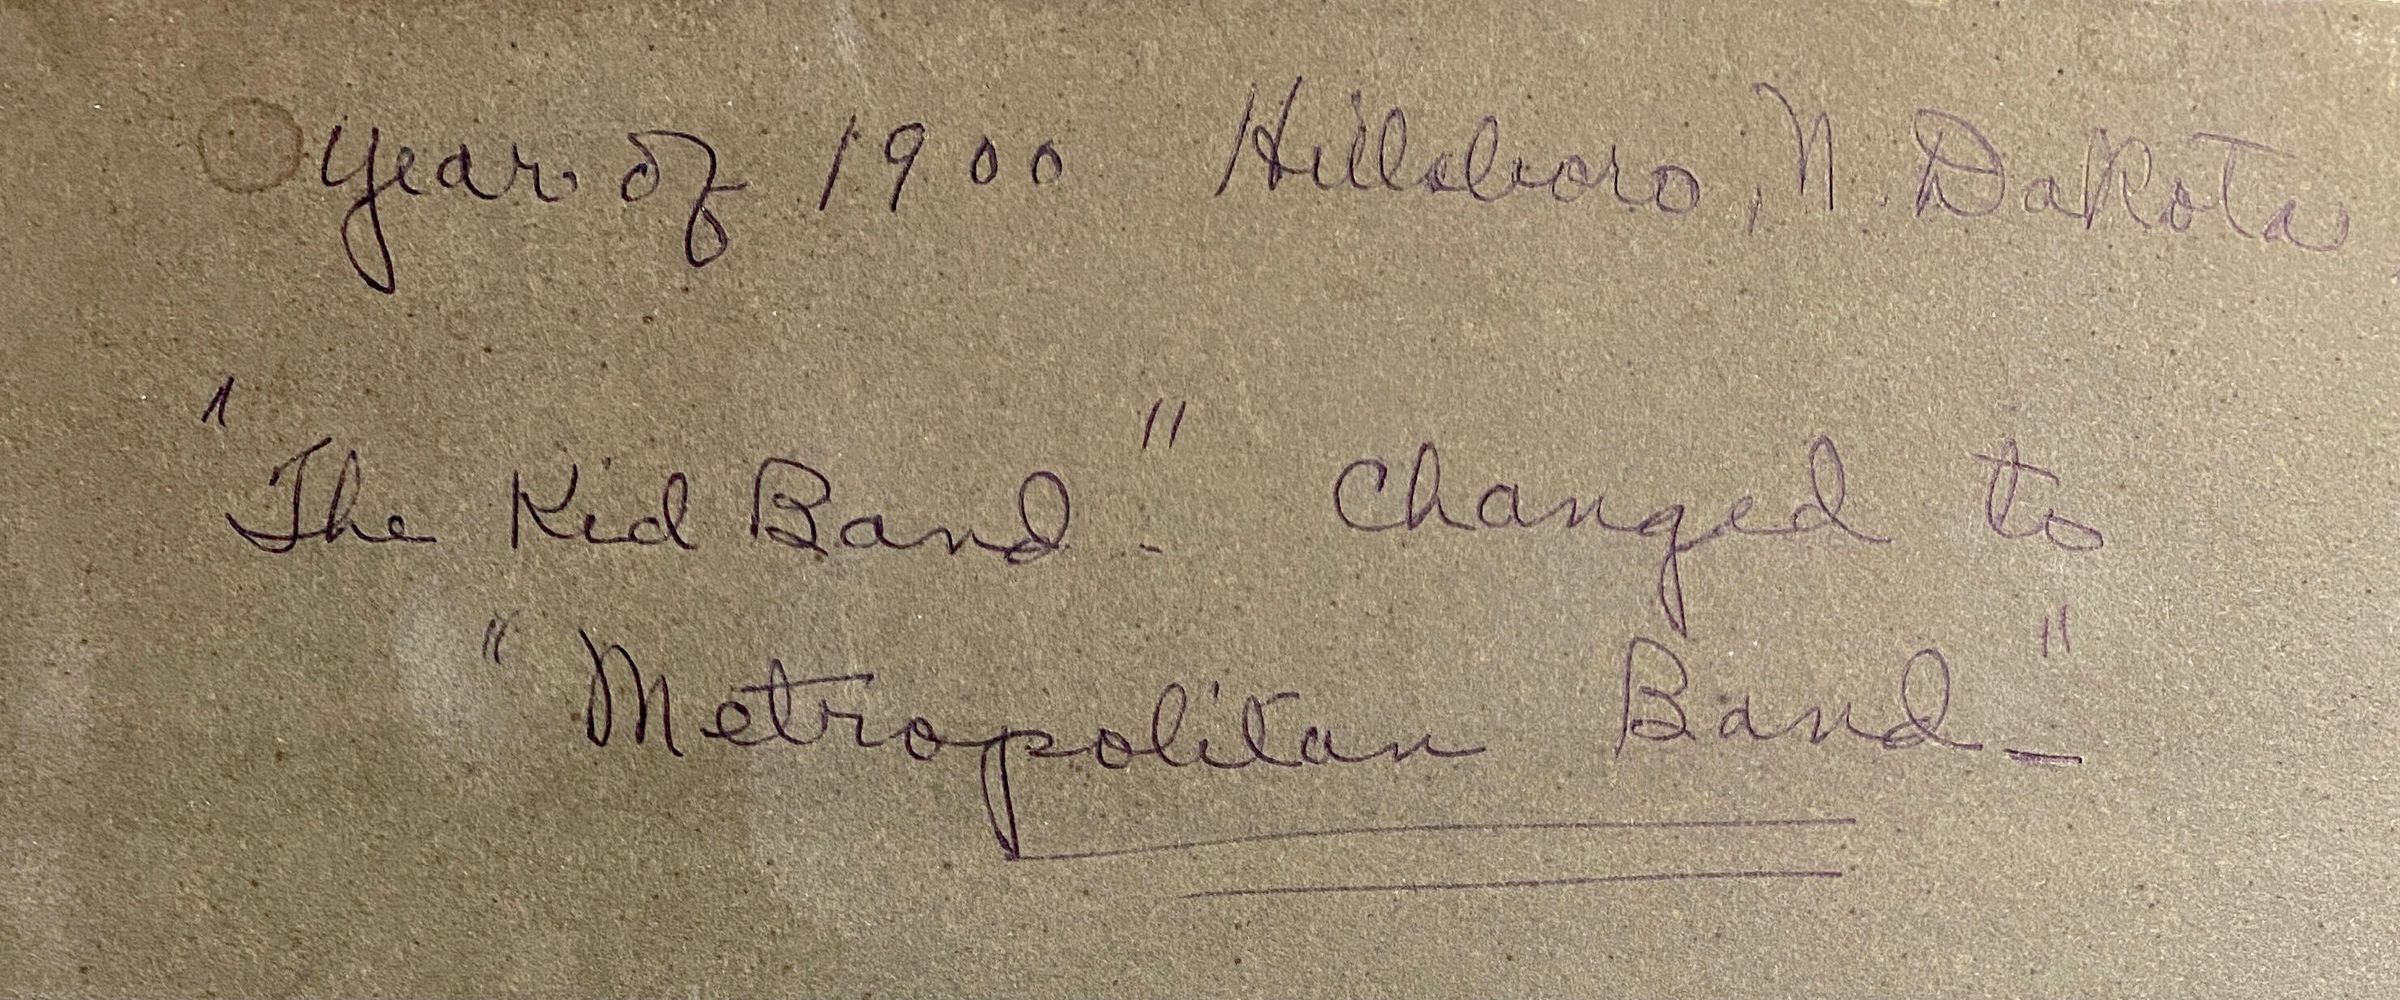 Year of 1900 Hillsboro, N. Dakota
"The Kid Band-" Changed to
"Metropolitan Band-"